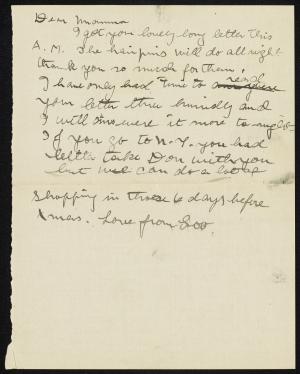 Dear Mamma
I got your lovely long letter this
A. M. The hairpins will do all right
thank you so much for them.
I have only had time to read
your letter thru hurriedly and
I will answer it more to-night.
If you go to N. Y. you had
better take Don with you
but we can do a lot of
shopping in those 6 days before
Xmas. Love from